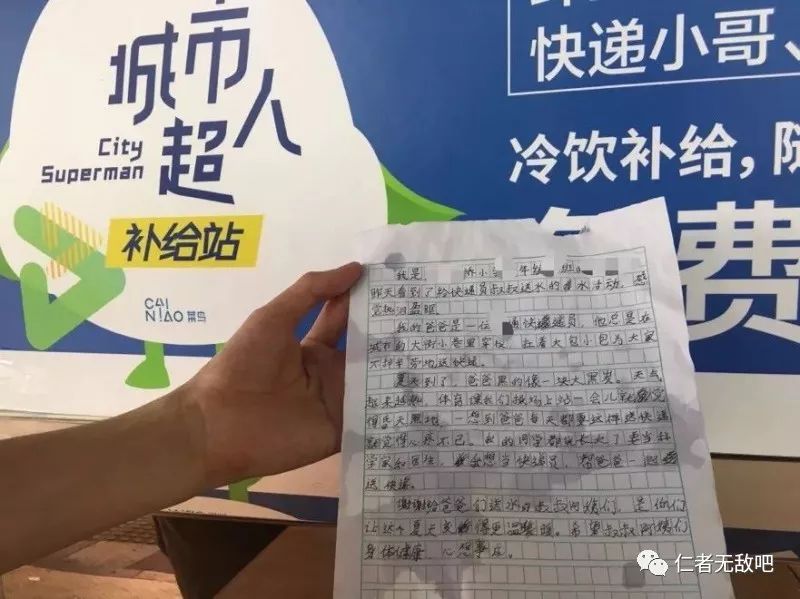 城市
City
Superman
超人
补给站
CAI
NIAO 菜鸟
快递小哥、
冷饮补给,
免费
我是 年级 班
昨天看到了给快递员叔叔送水的 水行动,感
觉
我的爸爸是一位 通快递员,他总是在
城市的大街小巷里穿梭,拉着大包小包为大家
送快递。
夏天到了,爸爸黑的像一块大黑炭。天气
越来越热,体育课我们操场上站一会儿就会觉
得 想到爸爸每天都要这样送快递
就觉得心疼不已。我的同学都说长大了要当科
学家和医生,我想当快递员,帮爸爸一起
送快递。
谢谢给爸爸们送水的叔叔阿姨们,是你们
让这个夏天变得更温暖。希望叔叔阿姨们
身体健康 心想事成。
仁者无敌吧